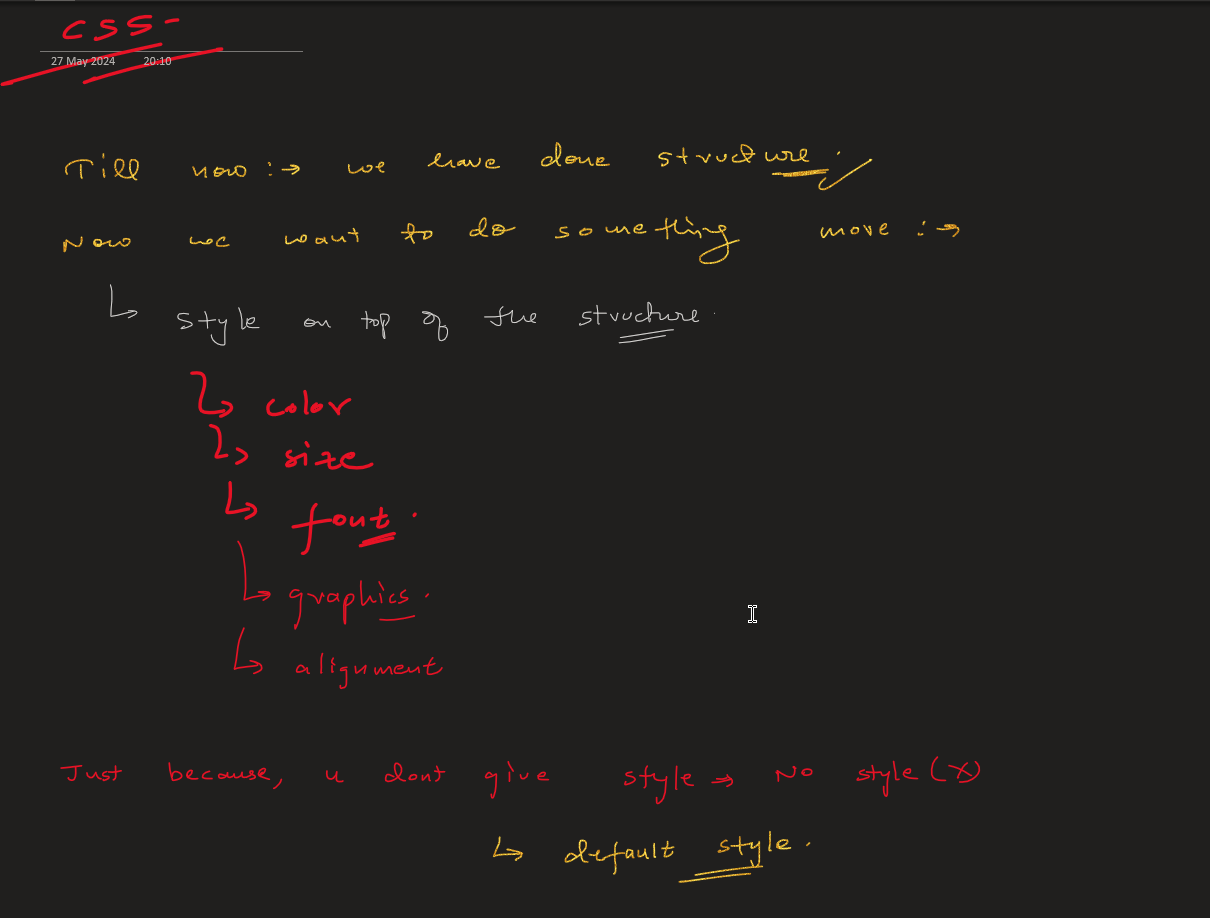 CSS-
27 May 2024 20:10
Till now :→ we have done structure.
Now we want to do something more :→
↳ style on top of the structure.
↳ color
↳ size
↳ font.
↳ graphics.
↳ alignment
Just because, u dont give style → No style (X)
↳ default style.